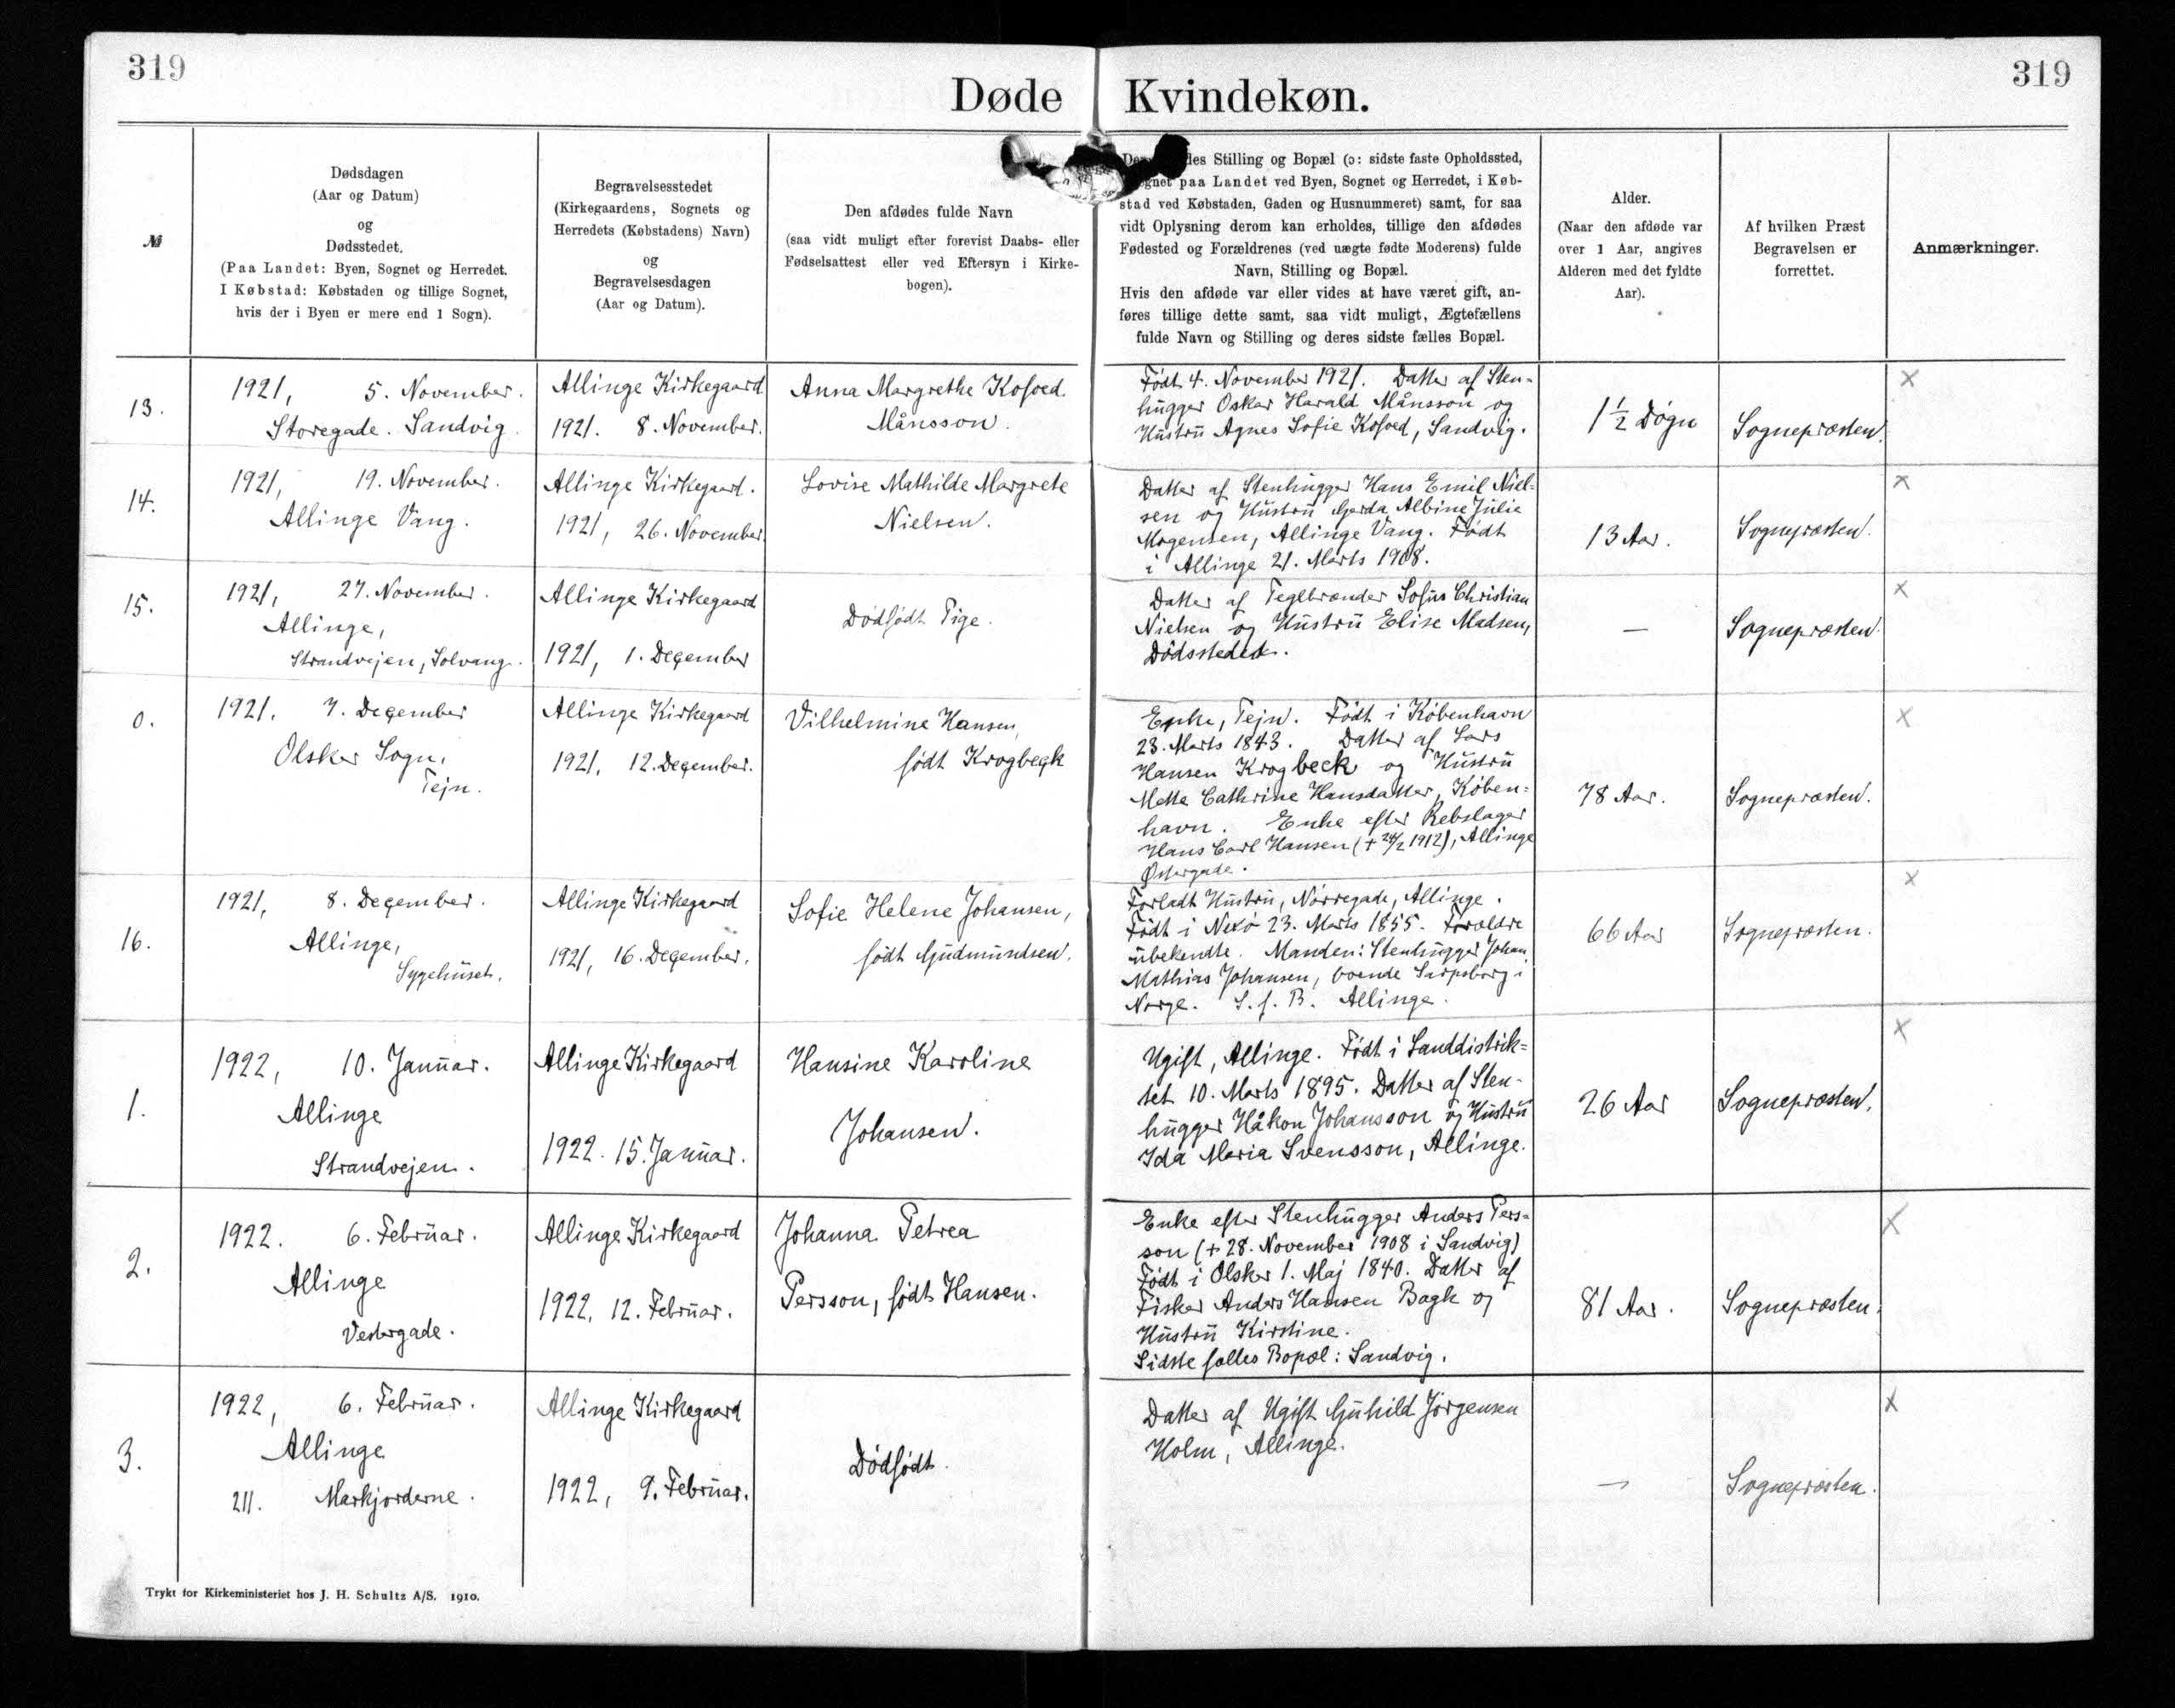 319
319
Døde Kvindekøn.
№
Dødsdagen
(Aar og Datum)
og
Dødsstedet.
(Paa Landet: Byen, Sognet og Herredet.
I Købstad: Købstaden og tillige Sognet,
hvis der i Byen er mere end 1 Sogn).
Begravelsesstedet
(Kirkegaardens, Sognets og
Herredets (Købstadens) Navn)
og
Begravelsesdagen
(Aar og Datum).
Den afdødes fulde Navn
(saa vidt muligt efter forevist Daabs- eller
Fødselsattest eller ved Eftersyn i Kirke-
bogen).
Stilling og Bopæl (ɔ: sidste faste Opholdssted,
paa Landet ved Byen, Sognet og Herredet, i Køb-
stad ved Købstaden, Gaden og Husnummeret) samt, for saa
vidt Oplysning derom kan erholdes, tillige den afdødes
Fødested og Forældrenes (ved uægte fødte Moderens) fulde
Navn, Stilling og Bopæl.
Hvis den afdøde var eller vides at have været gift, an-
føres tillige dette samt, saa vidt muligt, Ægtefællens
fulde Navn og Stilling og deres sidste fælles Bopæl.
Alder.
(Naar den afdøde var
over 1 Aar, angives
Alderen med det fyldte
Aar).
Af hvilken Præst
Begravelsen er
forrettet.
Anmærkninger.
13.
1921, 5. November.
Storegade. Sandvig.
Allinge Kirkegaard
1921. 8. November.
Anna Margrethe Kofoed
Månsson.
Født 4. November 1921. Datter af Sten-
hugger Oskar Harald Månsson og
Hustru Agnes Sofie Kofoed, Sandvig.
1 1/2 Døgn
Sognepræsten.
x
14.
1921, 19. November.
Allinge Vang.
Allinge Kirkegaard.
1921, 26. November.
Lovise Mathilde Margrete
Nielsen.
Datter af Stenhugger Hans Emil Niel-
sen og Hustru Gerda Albine Julie
Mogensen, Allinge Vang. Født
i Allinge 21. Marts 1908.
13 Aar.
Sognepræsten.
x
15.
1921, 27. November.
Allinge,
Strandvejen, Solvang.
Allinge Kirkegaard
1921, 1. December
Dødfødt Pige.
Datter af Teglbrænder Sofus Christian
Nielsen og Hustru Elise Madsen,
Dødsstedet.
—
Sognepræsten.
x
0.
1921. 7. December
Olsker Sogn,
Tejn.
Allinge Kirkegaard
1921. 12. December.
Vilhelmine Hansen,
født Krogbeck
Enke, Tejn. Født i København
23. Marts 1843. Datter af Lars
Hansen Krogbeck og Hustru
Mette Cathrine Hansdatter, Køben-
havn. Enke efter Rebslager
Hans Carl Hansen (+ 24/2 1912), Allinge
Østergade.
78 Aar.
Sognepræsten.
x
16.
1921, 8. December.
Allinge,
Sygehuset.
Allinge Kirkegaard
1921, 16. December.
Sofie Helene Johansen,
født Gudmundsen.
Forladt Hustru, Nørregade, Allinge.
Født i Nexø 23. Marts 1855. Forældre
ubekendte. Manden: Stenhugger Johan
Mathias Johansen, boende Sarpsborg i
Norge. S. f. B. Allinge.
66 Aar
Sognepræsten.
x
1.
1922, 10. Januar.
Allinge
Strandvejen.
Allinge Kirkegaard
1922. 15. Januar.
Hansine Karoline
Johansen.
Ugift, Allinge. Født i Sanddistrik-
tet 10. Marts 1895. Datter af Sten-
hugger Håkon Johansson og Hustru
Ida Maria Svensson, Allinge.
26 Aar
Sognepræsten.
x
2.
1922. 6. Februar.
Allinge
Vestergade.
Allinge Kirkegaard
1922, 12. Februar.
Johanna Petrea
Persson, født Hansen.
Enke efter Stenhugger Anders Pers-
son (+ 28. November 1908 i Sandvig)
Født i Olsker 1. Maj 1840. Datter af
Fisker Anders Hansen Bagk og
Hustru Kirstine.
Sidste fælles Bopæl: Sandvig.
81 Aar.
Sognepræsten.
x
3.
1922, 6. Februar.
Allinge
211. Markjorderne.
Allinge Kirkegaard
1922, 9. Februar.
Dødfødt.
Datter af Ugift Guhild Jørgensen
Holm, Allinge.
—
Sognepræsten.
x
Trykt for Kirkeministeriet hos J. H. Schultz A/S. 1910.